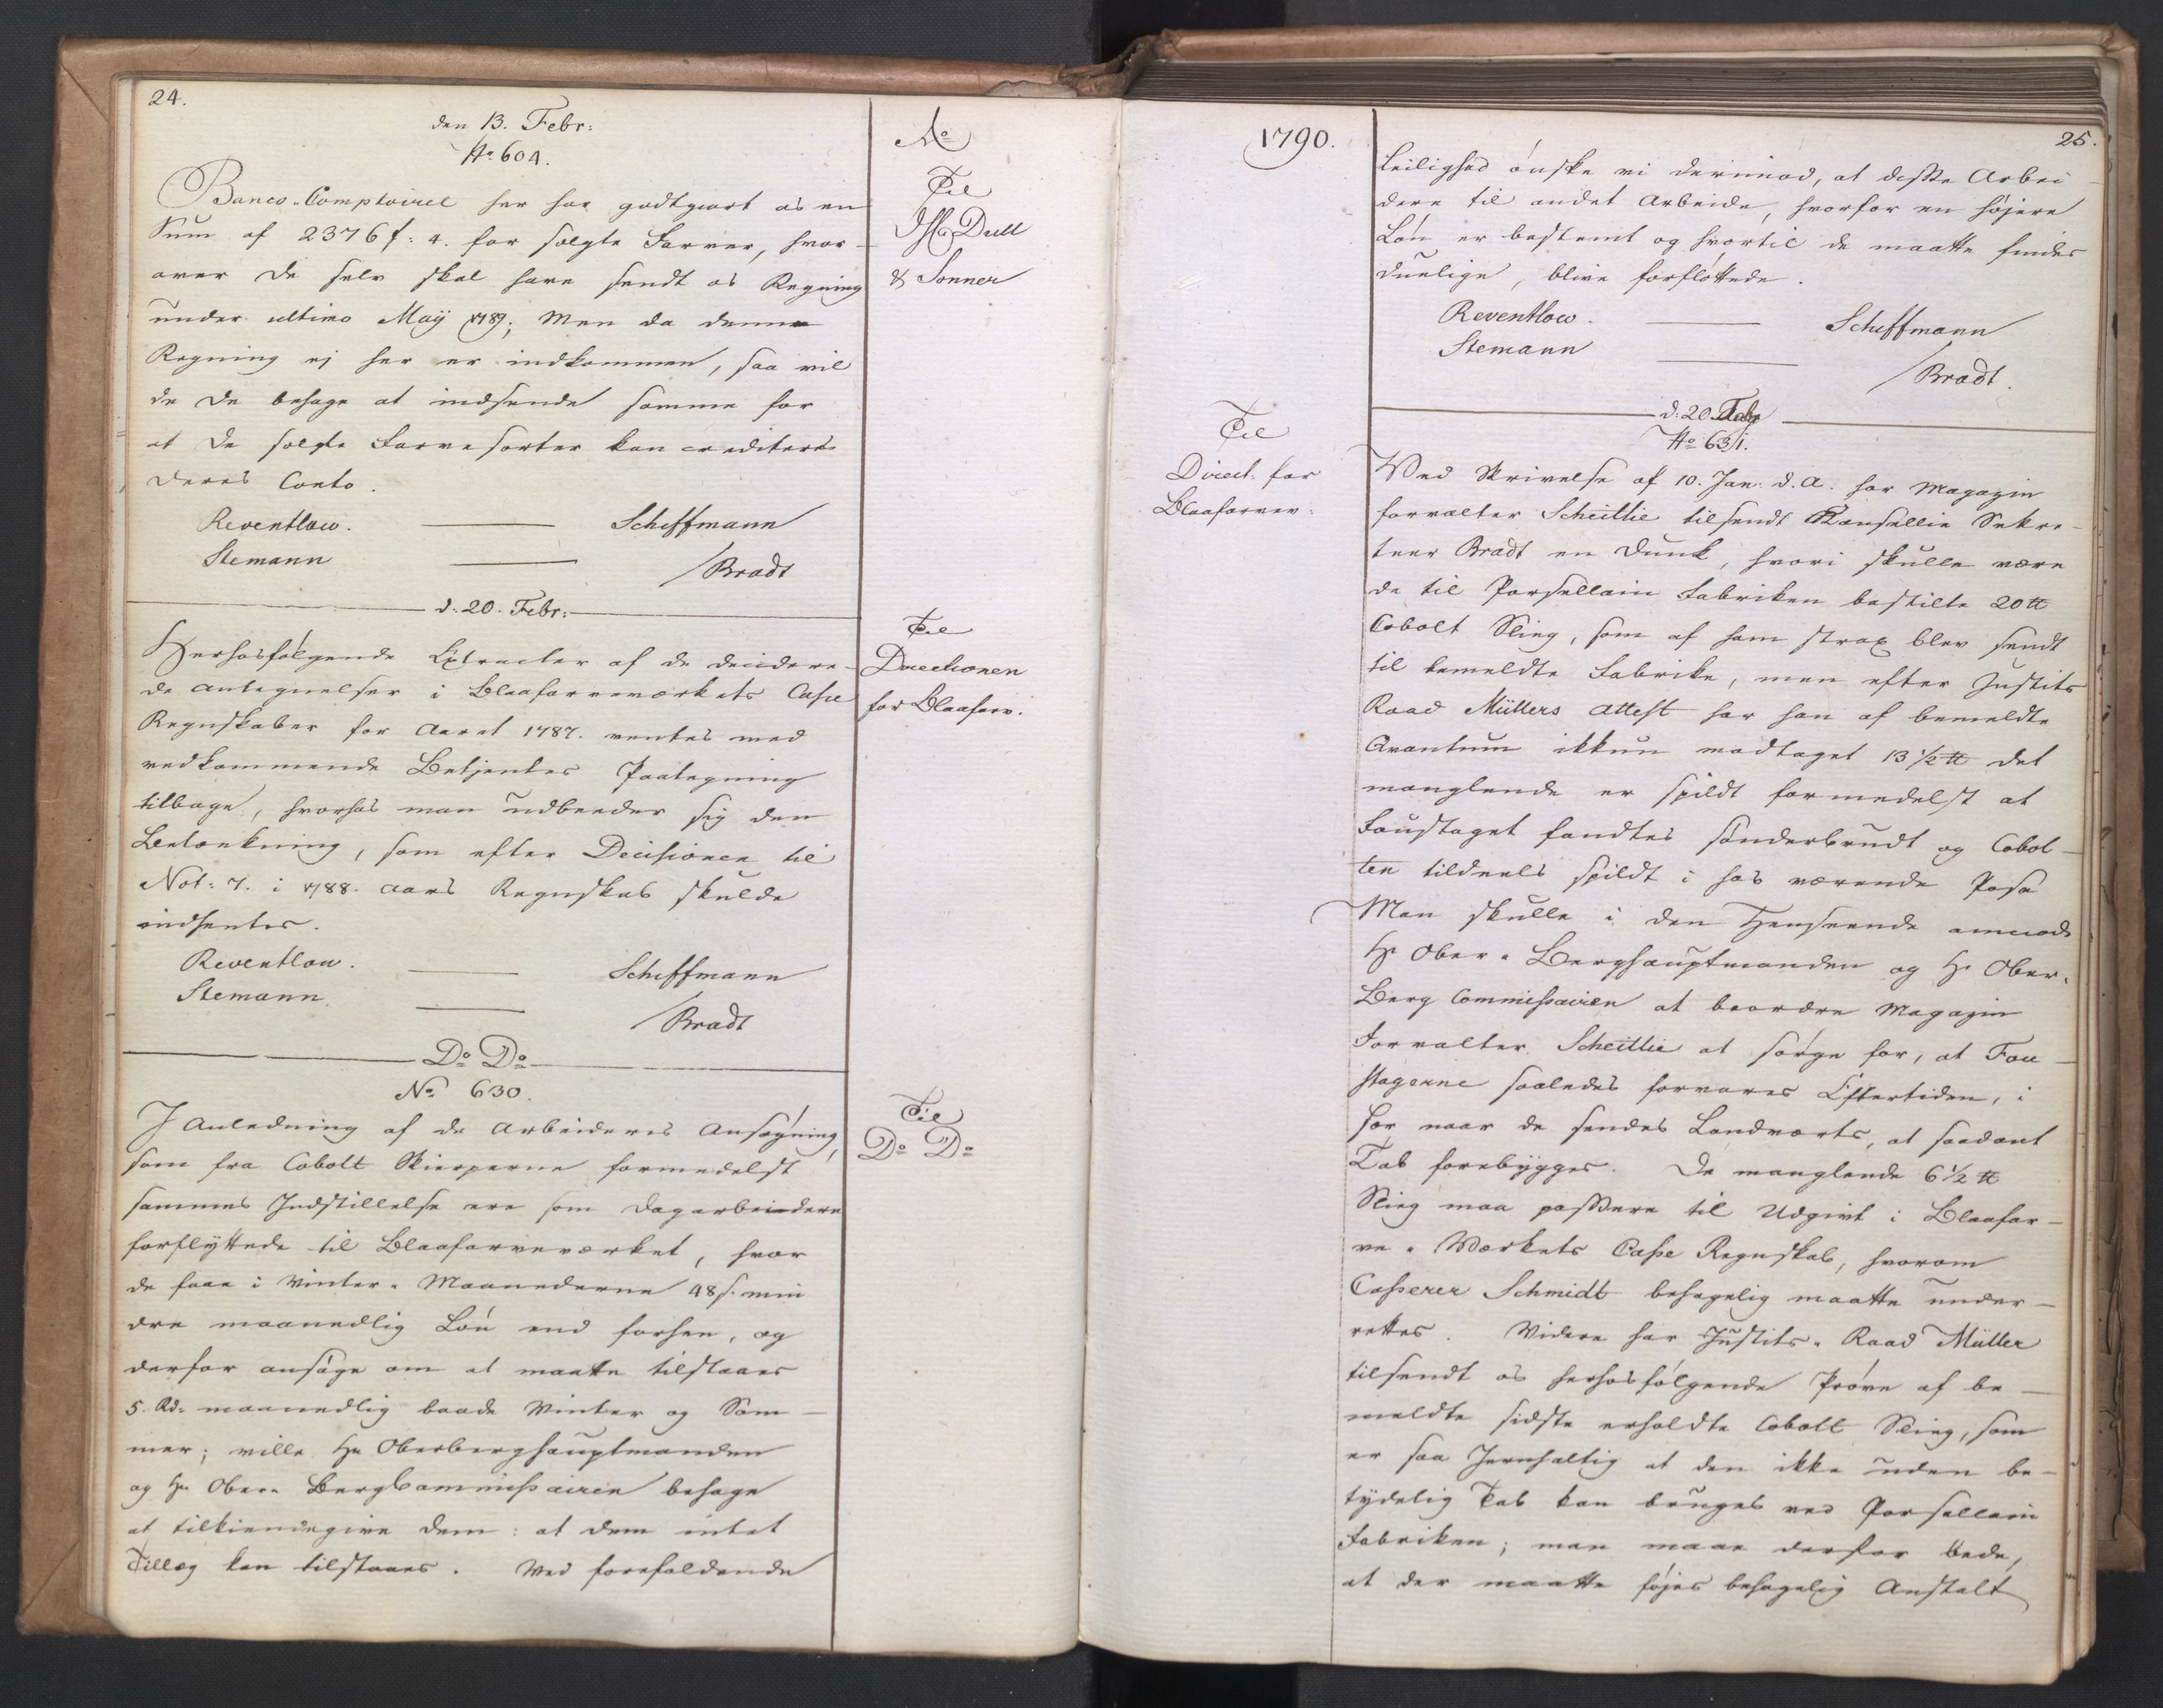 24.
den 13. Febr:
No 604.
Banco-Comptoiret her har godtgiort os en
Sum af 2376 f: 4. for solgte Farver, hvor-
over De selv skal have sendt os Regning
under ultimo Maÿ 1789; Men da denne
Regning ej her er indkommen, saa vil
de De behage at indsende samme for
at De solgte Farvesorter kan crediteres
Deres Conto.
Reventlow. Schiffmann
Stemann Bradt
Ao
Til
Dull
& Sønner
d: 20. Febr:
Herhosfølgende Extracter af de deciдere-
de Antegnelser i Blaafarveværkets Casse
Regnskaber for Aaret 1787. ventes med
vedkommende Betjentes Paategning
tilbage, hvorhos man udbeeder sig den
Betænkning, som efter Decisionen til
Not: 7. i 1788. Aars Regnskab skulde
indhentes.
Reventlow. Schiffmann
Stemann Bradt
Til
Directionen
for Blaafarv.
Do Do
No 630.
I Anledning af de Arbeideres Ansøgning,
som fra Cobolt Skierperne formedelst
sammes Indstillelse ere som Dagarbeidere
forflyttede til Blaafarveværket, hvor
de faae i Vinter-Maanederne 48 s. min
dre maanedlig Løn end forhen, og
derfor ansøge om at maatte tilstaaes
5. Rd. maanedlig baade Vinter og Som-
mer; ville Hr Oberberghauptmanden
og Hr Ober-BergCommissairen behage
at tilkiendegive dem: at dem intet
Tillæg kan tilstaaes. Ved forefaldende
Til
Do Do
1790.
25.
Leilighed ønske vi derimod, at disse Arbei-
dere til andet Arbeide, hvorfor en højere
Løn er bestemt og hvortil de maatte findes
duelige, blive forfløttede.
Reventlow. Schiffmann
Stemann Bradt.
d: 20. Febr
No 631.
Til
Direct. for
Blaafarvev:
Ved Skrivelse af 10. Jan: d. A. har Magazin
forvalter Scheitlie tilsendt Kansellie Sekre-
teer Bradt en Dunk, hvori skulle være
de til Porsellain Fabriken bestilte 20 ℔
Cobolt Slieg, som af ham strax blev sendt
til bemeldte Fabrike, men efter Justits
Raad Müllers Attest har han af bemeldte
Qvantum ikkun modtaget 13 1/2 ℔ det
manglende er spildt formedelst at
Foustaget fandtes sønderbrudt og Cobol-
ten tildeels spildt i hos værende Pose
Man skulle i den Henseende anmode
Hr Ober-Berghauptmanden og Hr Ober-
Berg Commissairen at beordre Magazin
Forvalter Scheitlie at sørge for, at Fou-
stagerne saaledes forvares Eftertiden, i
sær naar de sendes Landværts, at saadant
Tab forebygges. De manglende 6 1/2 ℔
Slieg maa passere til Udgivt i Blaafar-
ve-Værkets Casse Regnskab, hvorom
Casserer Schmidt behagelig maatte under-
rettes. Videre har Justits-Raad Müller
tilsendt os herhosfølgende Prøve af be-
meldte sidste erholdte Cobolt Slieg, som
er saa Jernhaltig at den ikke uden be-
tydelig Tab kan bruges ved Porsellain
Fabriken; man maae derfor bede,
at der maatte føjes behagelig Anstalt